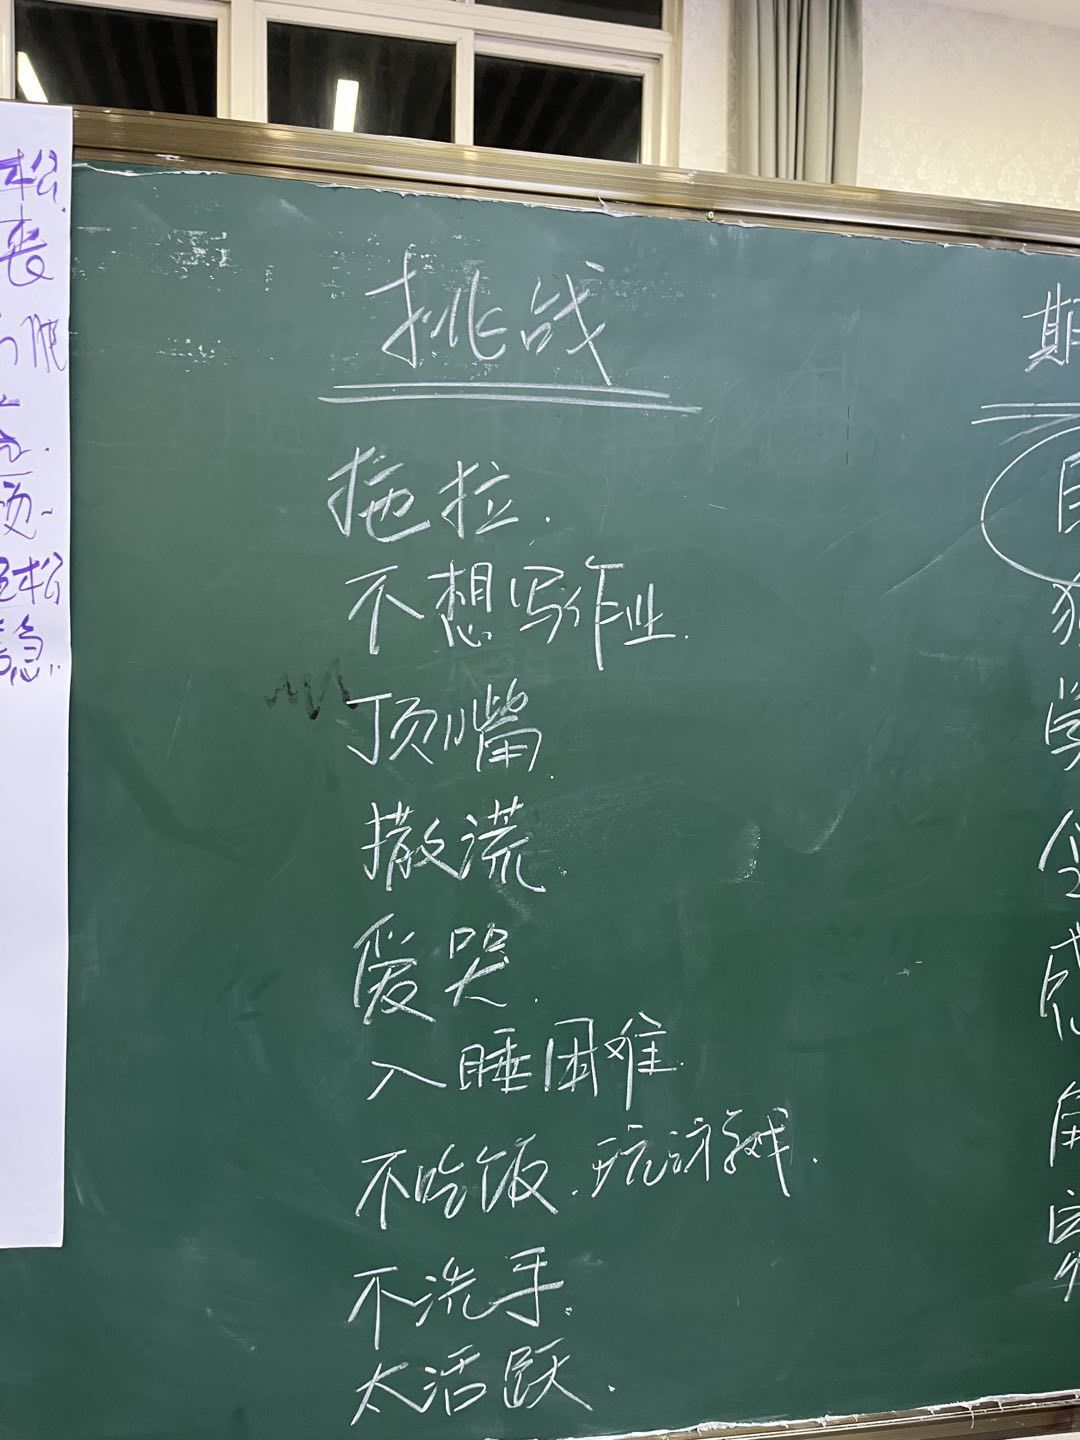 挑战
拖拉.
不想写作业.
顶嘴.
撒谎
爱哭.
入睡困难.
不吃饭.玩游戏.
不洗手.
太活跃.
期
学
松.
丧
松
急..